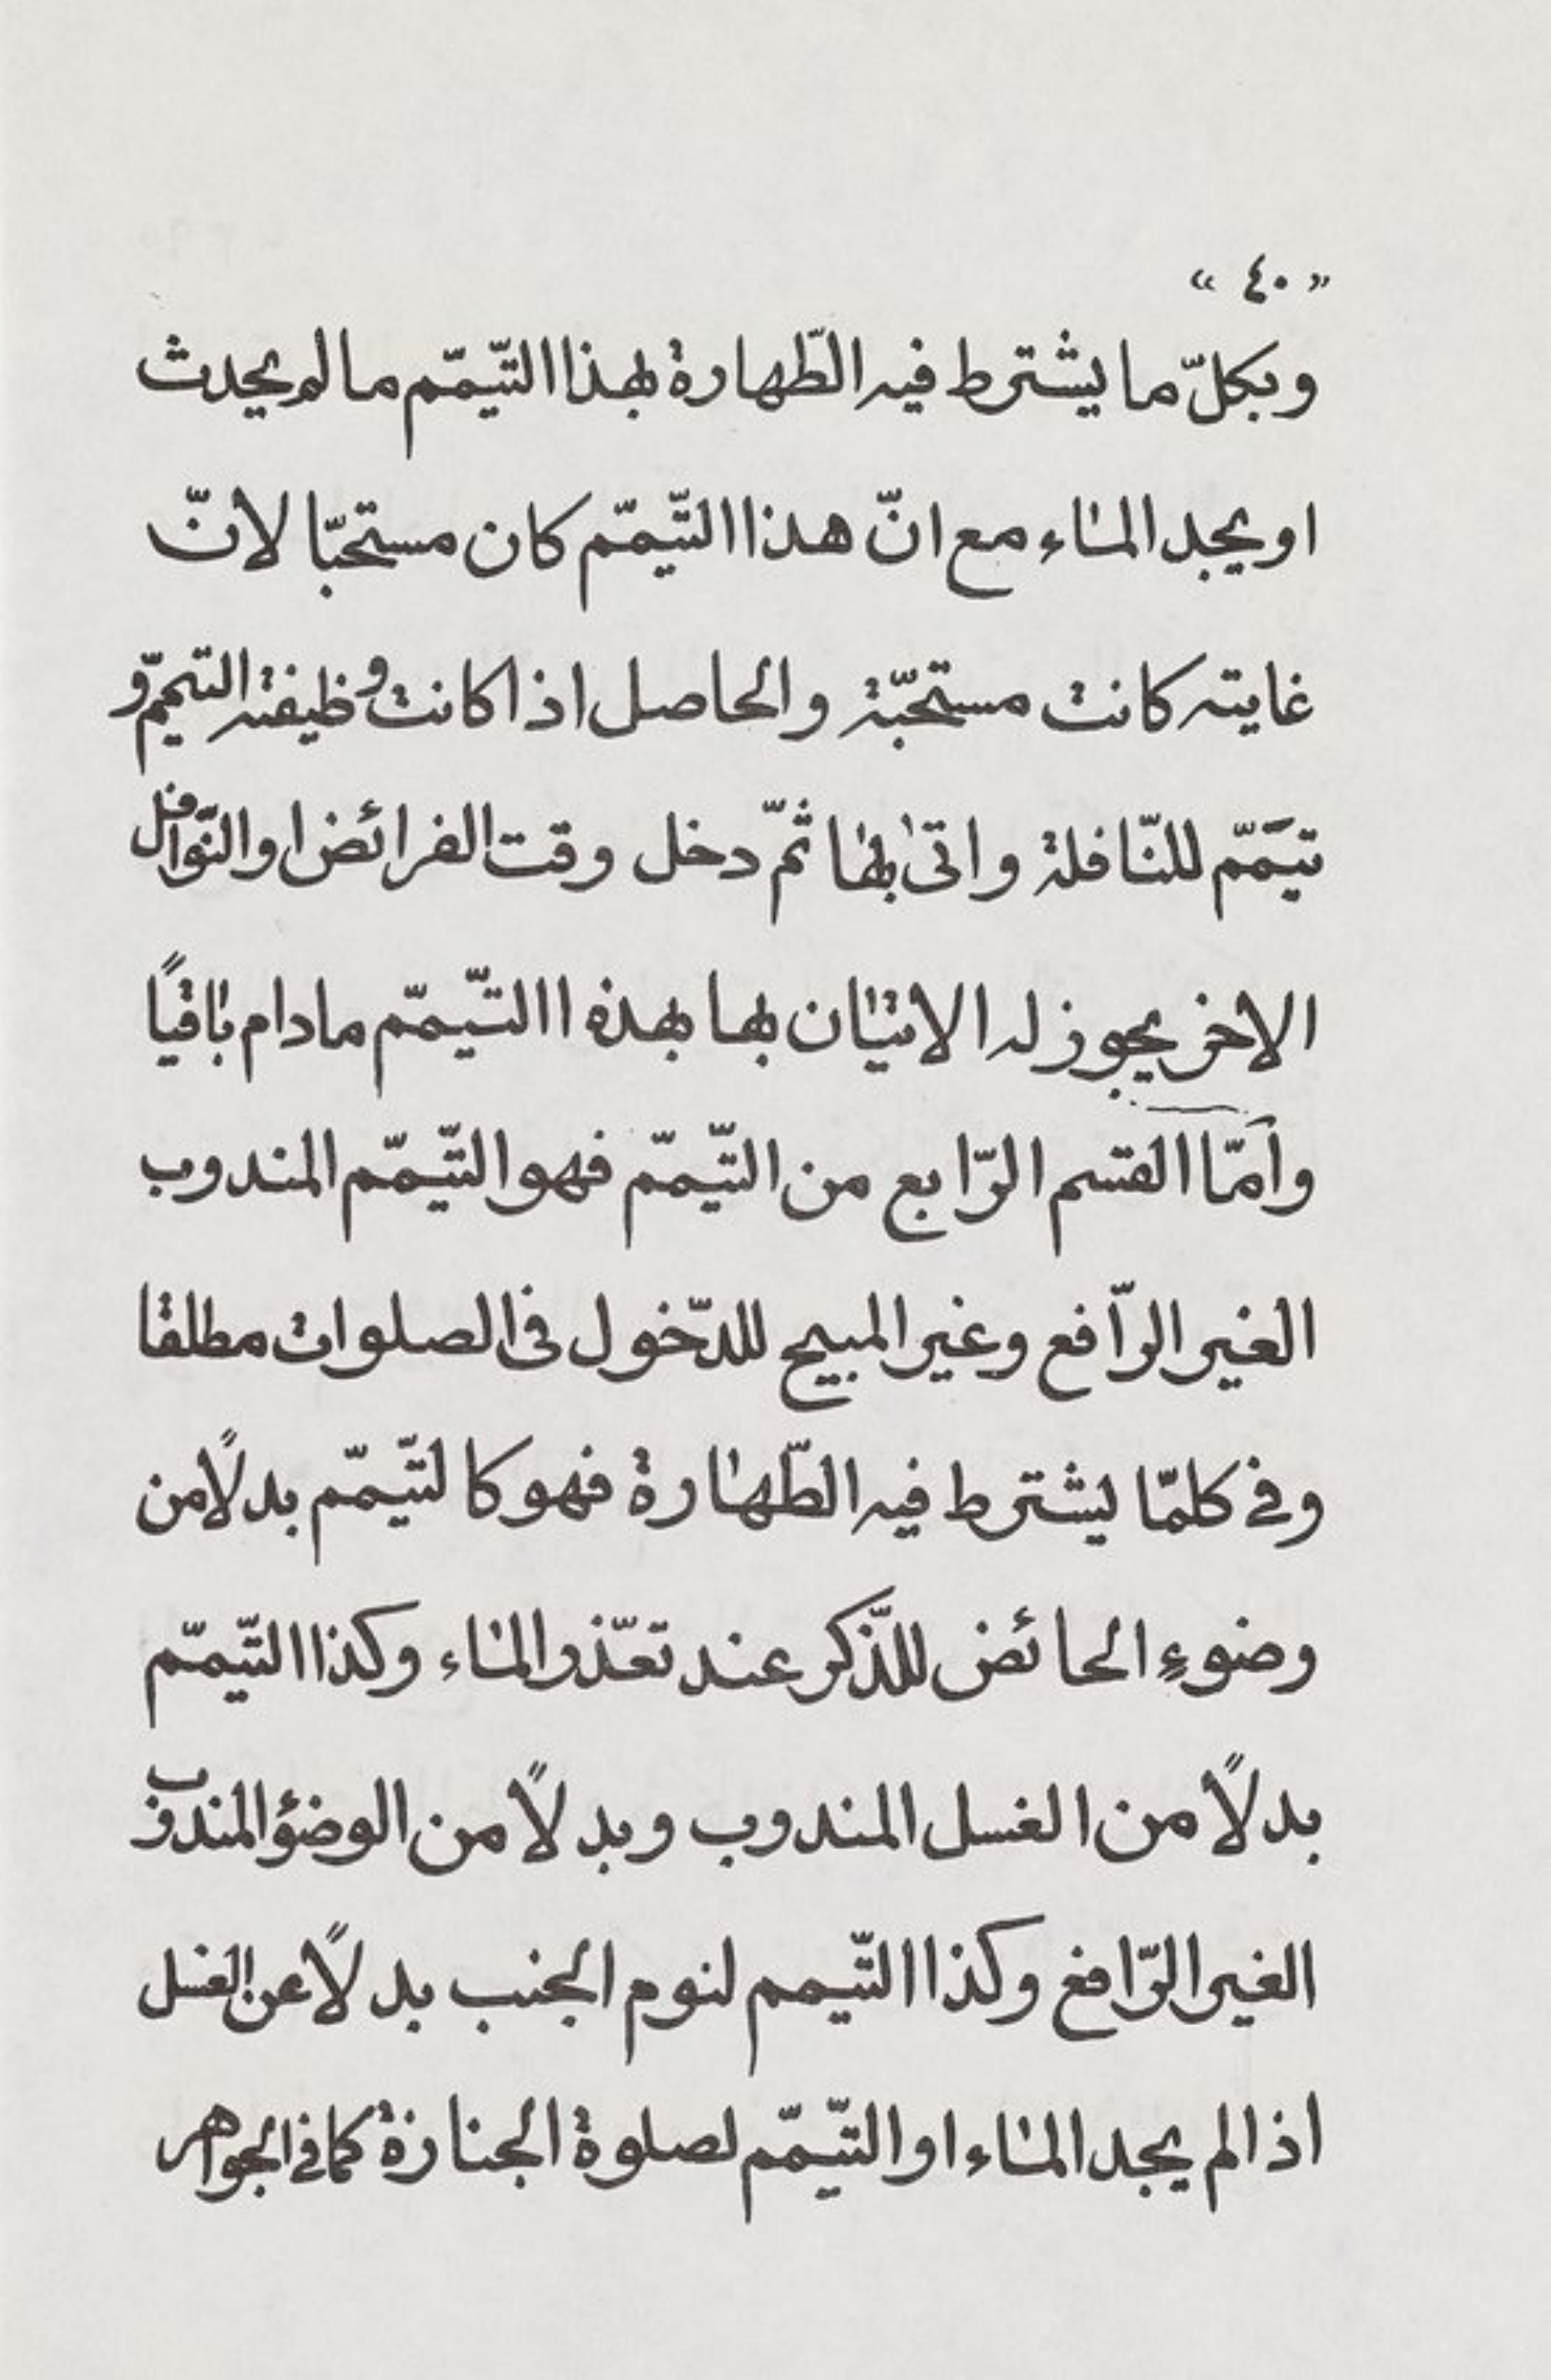 « ٤٠ »
وبكلّ ما يشترط فيه الطّهارة بهذا التّيمّم ما لم يحدث
او يجد الماء مع انّ هذا التّيمّم كان مستحبّا لانّ
غايته كانت مستحبّة والحاصل اذا كانت وظيفته التيمّم و
تيَمّم للنّافلة واتىٰ بها ثمّ دخل وقت الفرائض او النّوافل
الاخر يجوز له الاتيان بها بهذه االتّيمّم مادام باقياً
وأمّا القسم الرّابع من التّيمّم فهو التّيمّم المندوب
الغير الرّافع وغير المبيح للدّخول فى الصلوات مطلقا
وفى كلمّا يشترط فيه الطّهارة فهو كالتّيمّم بدلاً من
وضوءِ الحائض للذّكر عند تعذّر الماء وكذا التّيمّم
بدلاً من الغسل المندوب وبدلاً من الوضؤ المندوب
الغير الرّافع وكذا التّيمم لنوم الجنب بدلاً عن الغسل
اذا لم يجد الماء او التّيمّم لصلوة الجنازة كما فى الجواهر